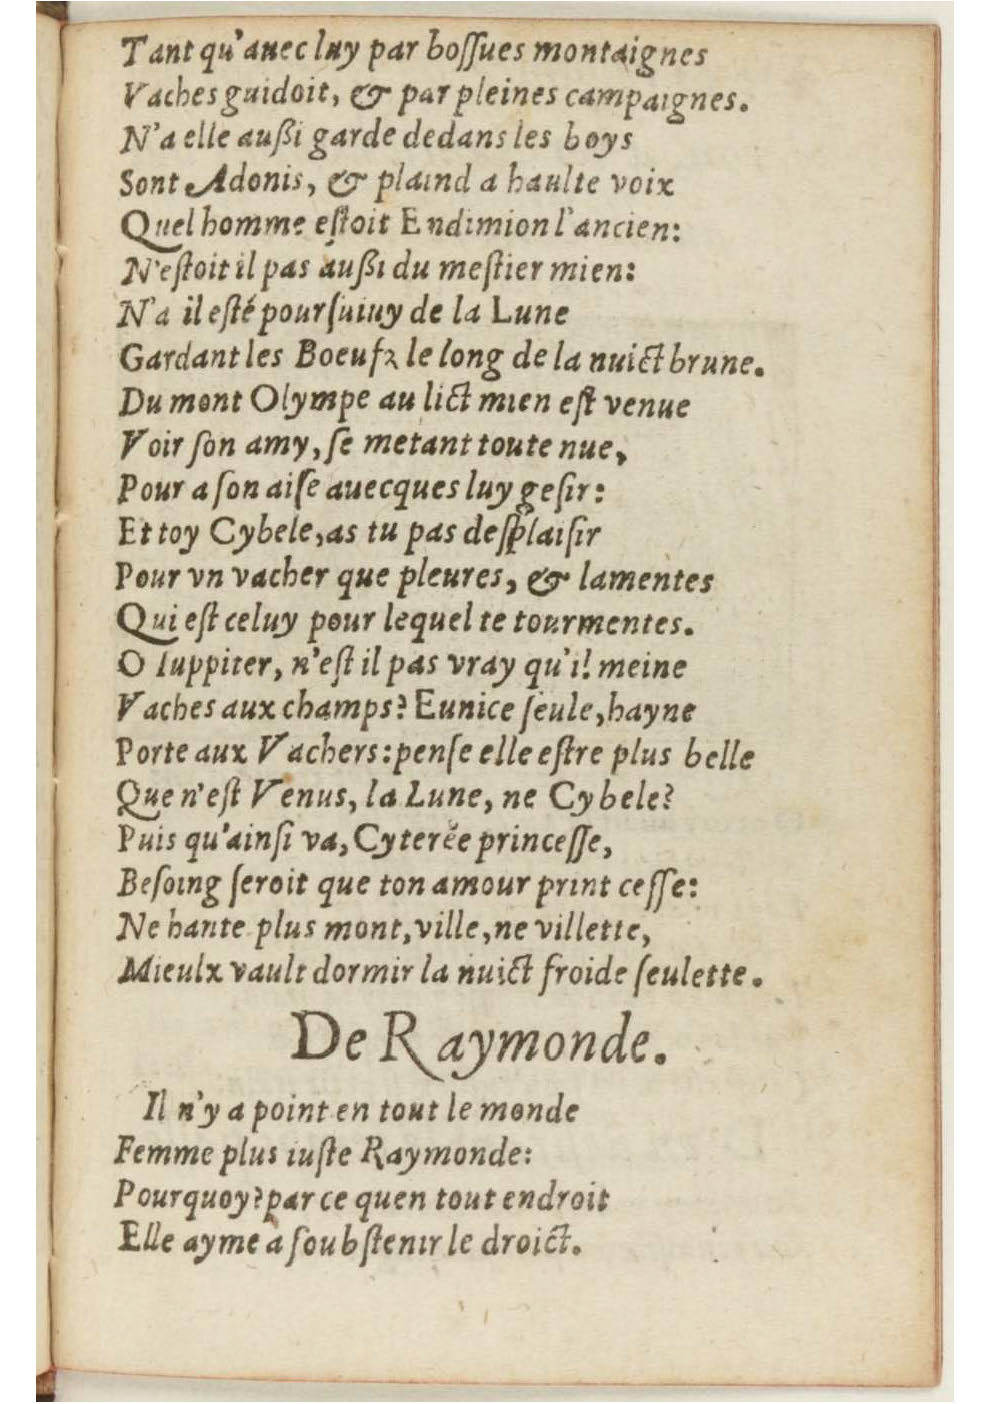 Tant qu'auec luy par boſſues montaignes
Vaches guidoit, & par pleines campaignes.
N'a elle außi garde dedans les boys
Sont Adonis, & plaind a haulte voix
Quel homme eſtoit Endimion l'ancien:
N'eſtoit il pas außi du meſtier mien:
N'a il eſté pourſuiuy de la Lune
Gardant les Boeufz le long de la nuict brune.
Du mont Olympe au lict mien eſt venue
Voir ſon amy, ſe metant toute nue,
Pour a ſon aiſe auecques luy geſir:
Et toy Cybele, as tu pas deſplaiſir
Pour vn vacher que pleures, & lamentes
Qui eſt celuy pour lequel te tourmentes.
O Iuppiter, n'eſt il pas vray qu'il meine
Vaches aux champs? Eunice ſeule, hayne
Porte aux Vachers: penſe elle eſtre plus belle
Que n'eſt Venus, la Lune, ne Cybele?
Puis qu'ainſi va, Cyterée princeſſe,
Beſoing ſeroit que ton amour print ceſſe:
Ne hante plus mont, ville, ne villette,
Mieulx vault dormir la nuict froide ſeulette.
De Raymonde.
Il n'y a point en tout le monde
Femme plus iuſte Raymonde:
Pourquoy? par ce quen tout endroit
Elle ayme à ſoubſtenir le droict.